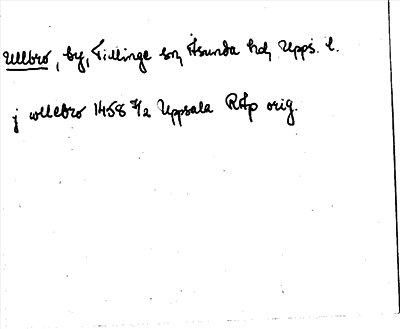 Ullbro, by, Tillinge sn, Åsunda hd, Upps. l.
j wllebro 1458 7/2 Uppsala RAp orig.